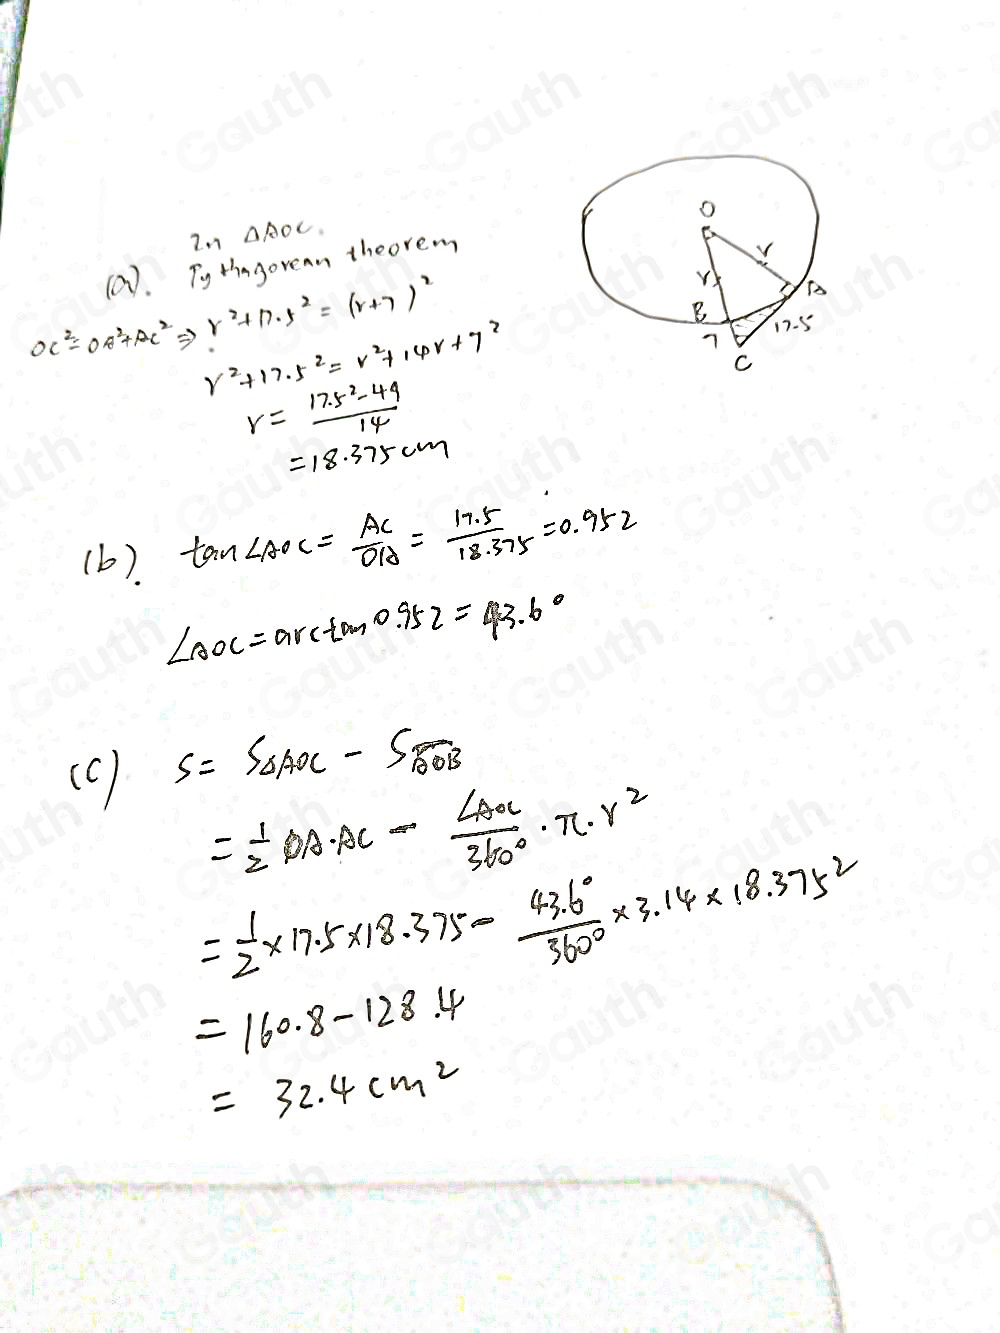 In △AOC.
(a). Pythagorean theorem
OC²=OA²+AC² ⇒ r²+17.5² = (r+7)²
r²+17.5² = r²+14r+7²
r = (17.5²-49)/14
=18.375cm
O
r
r
A
B
17.5
7
C
(b). tan∠AOC = AC/OA = 17.5/18.375 = 0.952
∠AOC = arctan 0.952 = 43.6°
(C) S = S△AOC - S⌒AOB
= 1/2 OA·AC - ∠AOC/360° · π · r²
= 1/2 × 17.5 × 18.375 - 43.6°/360° × 3.14 × 18.375²
= 160.8 - 128.4
= 32.4 cm²
Gauth